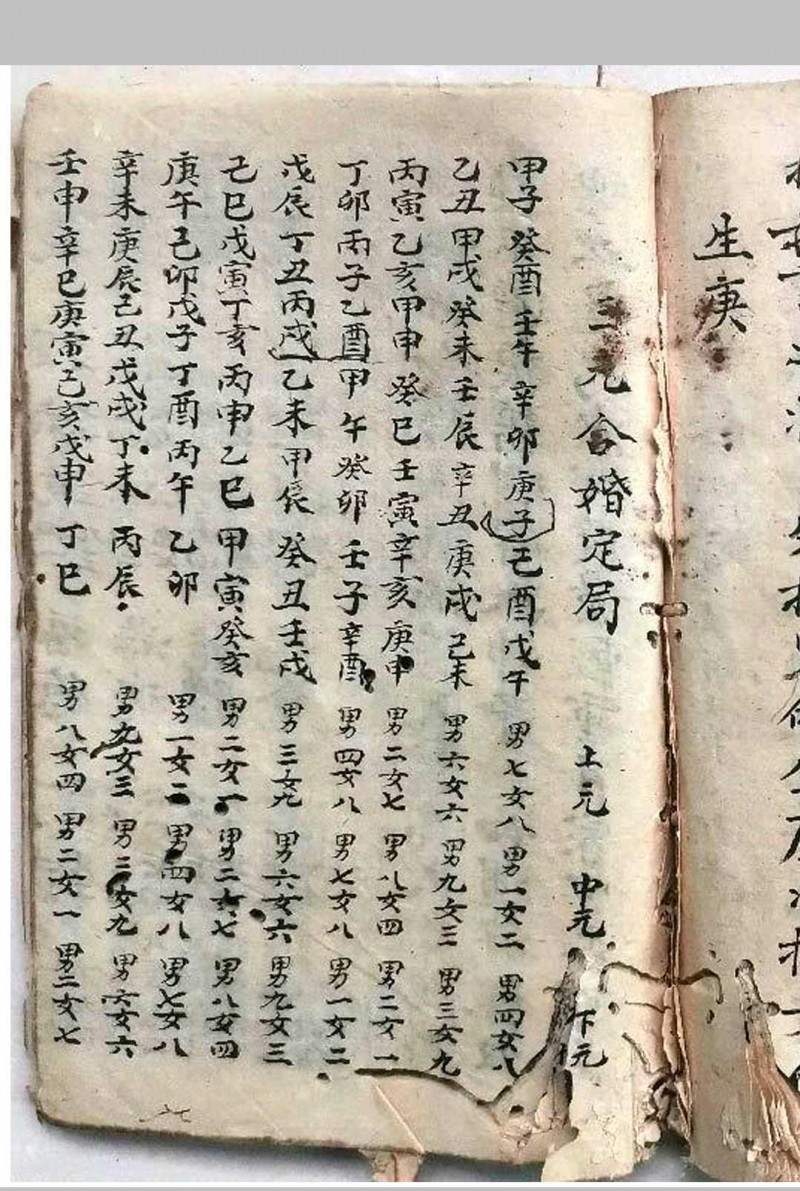 生庚
三元合婚定局 上元 中元 下元
甲子癸酉壬午辛卯庚子己酉戊午 男七女八 男一女二 男四女八
乙丑甲戌癸未壬辰辛丑庚戌己未 男六女六 男九女三 男三女九
丙寅乙亥甲申癸巳壬寅辛亥庚申 男二女七 男八女四 男二女一
丁卯丙子乙酉甲午癸卯壬子辛酉 男四女八 男七女八 男一女二
戊辰丁丑丙戌乙未甲辰癸丑壬戌 男三女九 男六女六 男九女三
己巳戊寅丁亥丙申乙巳甲寅癸亥 男二女一 男二女七 男八女四
庚午己卯戊子丁酉丙午乙卯 男一女二 男四女八 男七女八
辛未庚辰己丑戊戌丁未丙辰 男九女三 男三女九 男六女六
壬申辛巳庚寅己亥戊申丁巳 男八女四 男二女一 男二女七